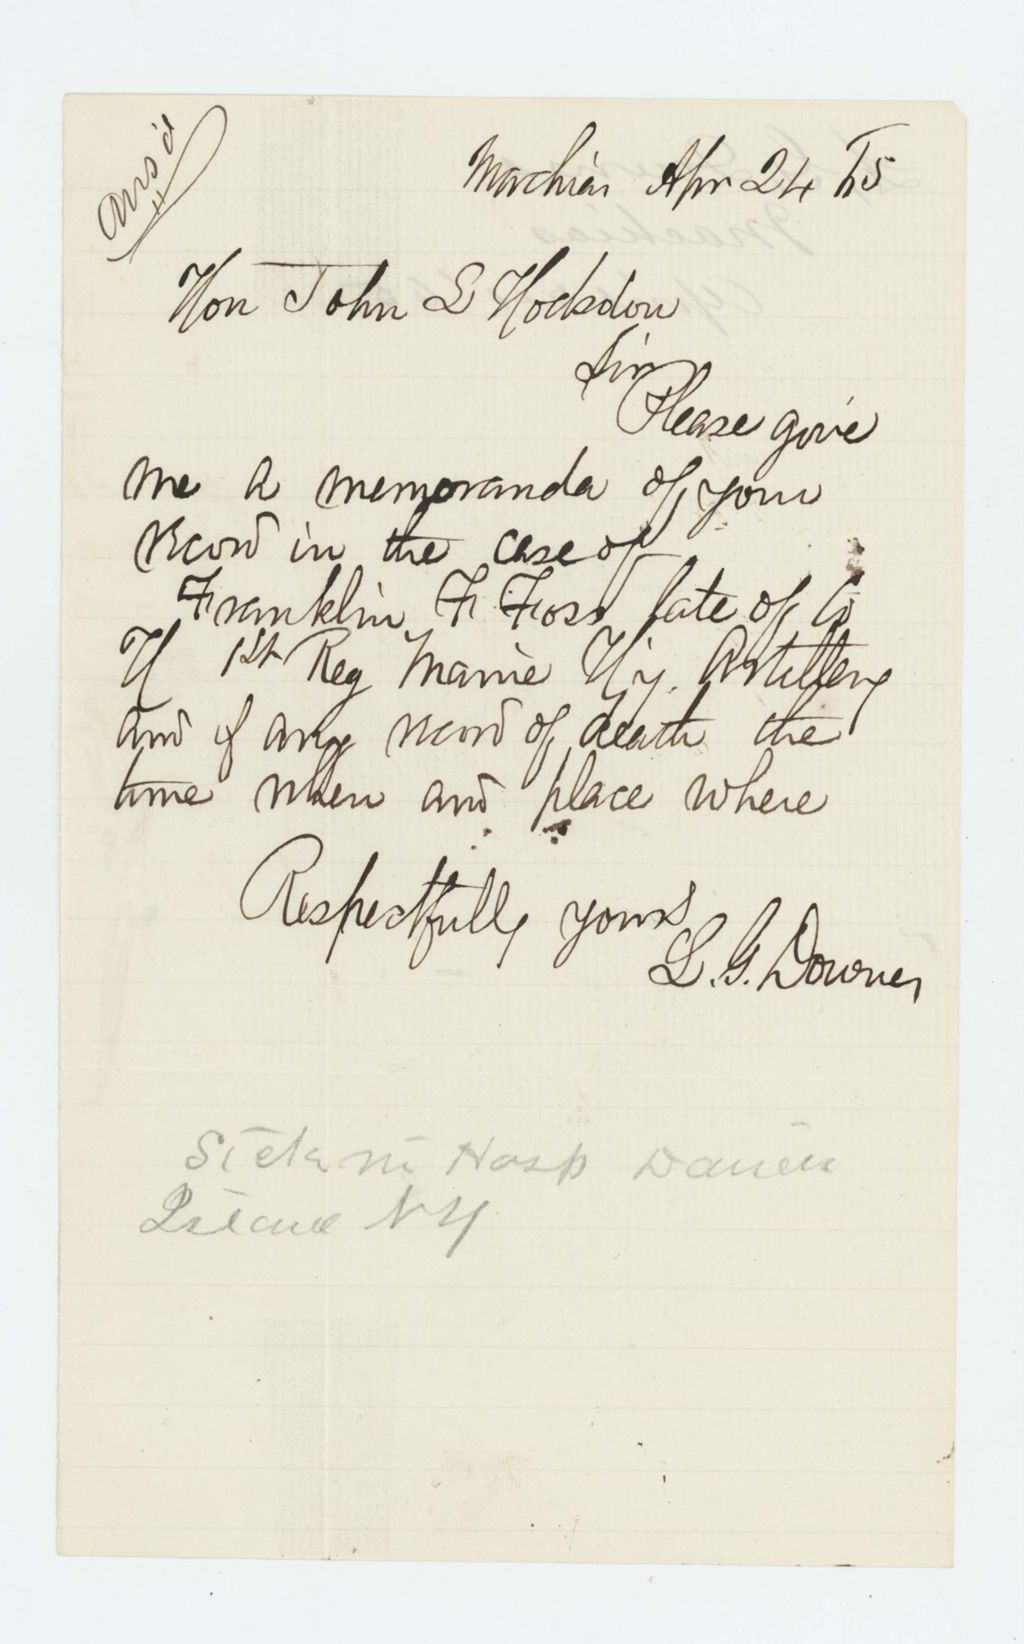 Ans'd
Machias Apr 24 /65
Hon John L Hodsdon
Sir
Please give
me a memoranda of your
record in the case of
Franklin F. Foss late of Co
H 1st Reg Maine H'y. Artillery
and if any record of death the
time when and place where
Respectfully yours
L. G. Downes
Sick in Hosp Davids
Island NY